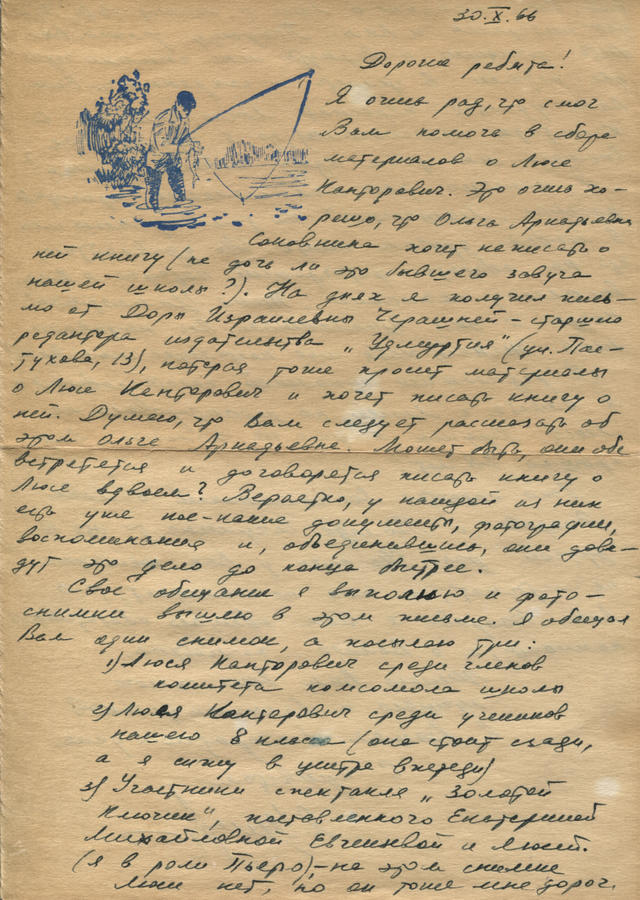 30.X.66
Дорогие ребята!
Я очень рад, что смог
Вам помочь в сборе
материалов о Люсе
Канторович. Это очень хо-
рошо, что Ольга Аркадьевна
хочет написать о
ней книгу (не дочь ли это бывшего завуча
нашей школы?). На днях я получил пись-
мо от Доры Израилевны Черашней – старшего
редактора издательства „Удмуртия" (ул. Пас-
тухова, 13), которая тоже просит материалы
о Люсе Канторович и хочет писать книгу о
ней. Думаю, что Вам следует рассказать об
этом Ольге Аркадьевне. Может быть, они обе
встретятся и договорятся писать книгу о
Люсе вдвоем? Вероятно, у каждой из них
есть уже кое-какие документы, фотографии,
воспоминания и, объединившись, они дове-
дут это дело до конца быстрее.
Свое обещание я выполню и фото-
снимки вышлю в этом письме. Я обещал
Вам один снимок, а посылаю три:
1) Люся Канторович среди членов
комитета комсомола школы
2) Люся Канторович среди учеников
нашего 8 класса (она стоит сзади,
а я сижу в центре впереди)
3) Участники спектакля „Золотой
Ключик", поставленного Екатериной
Михайловной и Люсей.
(я в роли Пьеро), – на этом снимке
Люси нет, но он тоже мне дорог.